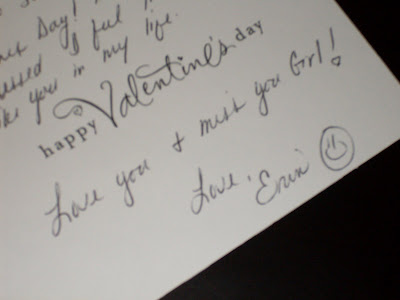 Day!
I feel
like you in my life.
happy Valentine's day
Love you & miss you Girl!
Love,
Erin